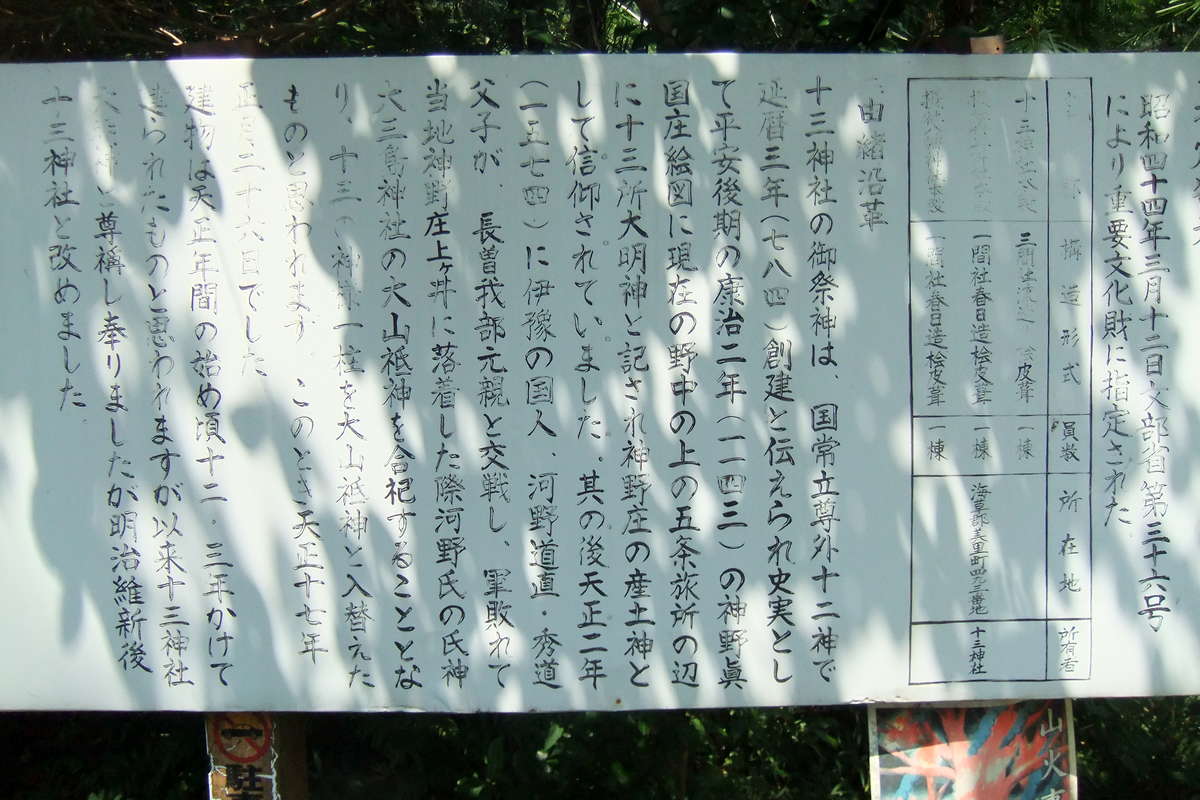 昭和四十四年三月十二日文部省第三十六号
により重要文化財に指定された
構造形式
員数
所在地
所有者
三間社 桧皮葺
一棟
一間社春日造桧皮葺
一棟
海草郡美里町
十三神社
一間社春日造桧皮葺
一棟
由緒沿革
十三神社の御祭神は、国常立尊外十二神で
延暦三年(七八四)創建と伝えられ史実とし
て平安後期の康治二年(一一四三)の神野眞
国庄絵図に現在の野中の上の五条旅所の辺
に十三所大明神と記され神野庄の産土神と
して信仰されていました。其の後天正二年
(一五七四)に伊豫の国人、河野道直・秀道
父子が、長曽我部元親と交戦し、軍敗れて
当地神野庄上ヶ井に落着した際河野氏の氏神
大三島神社の大山祇神を合祀することとな
り、十三の神様一柱を大山祇神と入替えた
ものと思われます このとき天正十七年
正月二十六日でした
建物は天正年間の始め頃十二・三年かけて
造られたものと思われますが以来十三神社
と尊稱し奉りましたが明治維新後
十三神社と改めました
山火
駐